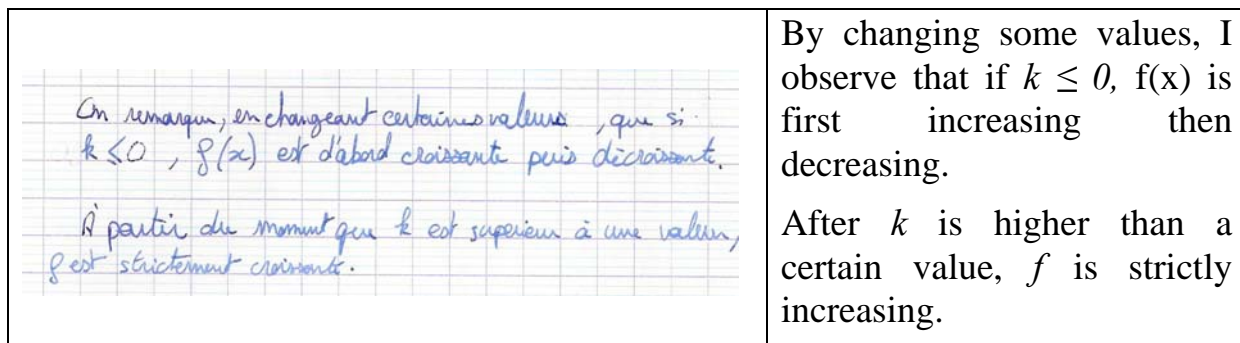 On remarque, en changeant certaines valeurs, que si
k ≤ 0, f(x) est d'abord croissante puis décroissante.
À partir du moment que k est supérieur à une valeur,
f est strictement croissante.
By changing some values, I
observe that if k ≤ 0, f(x) is
first increasing then
decreasing.
After k is higher than a
certain value, f is strictly
increasing.